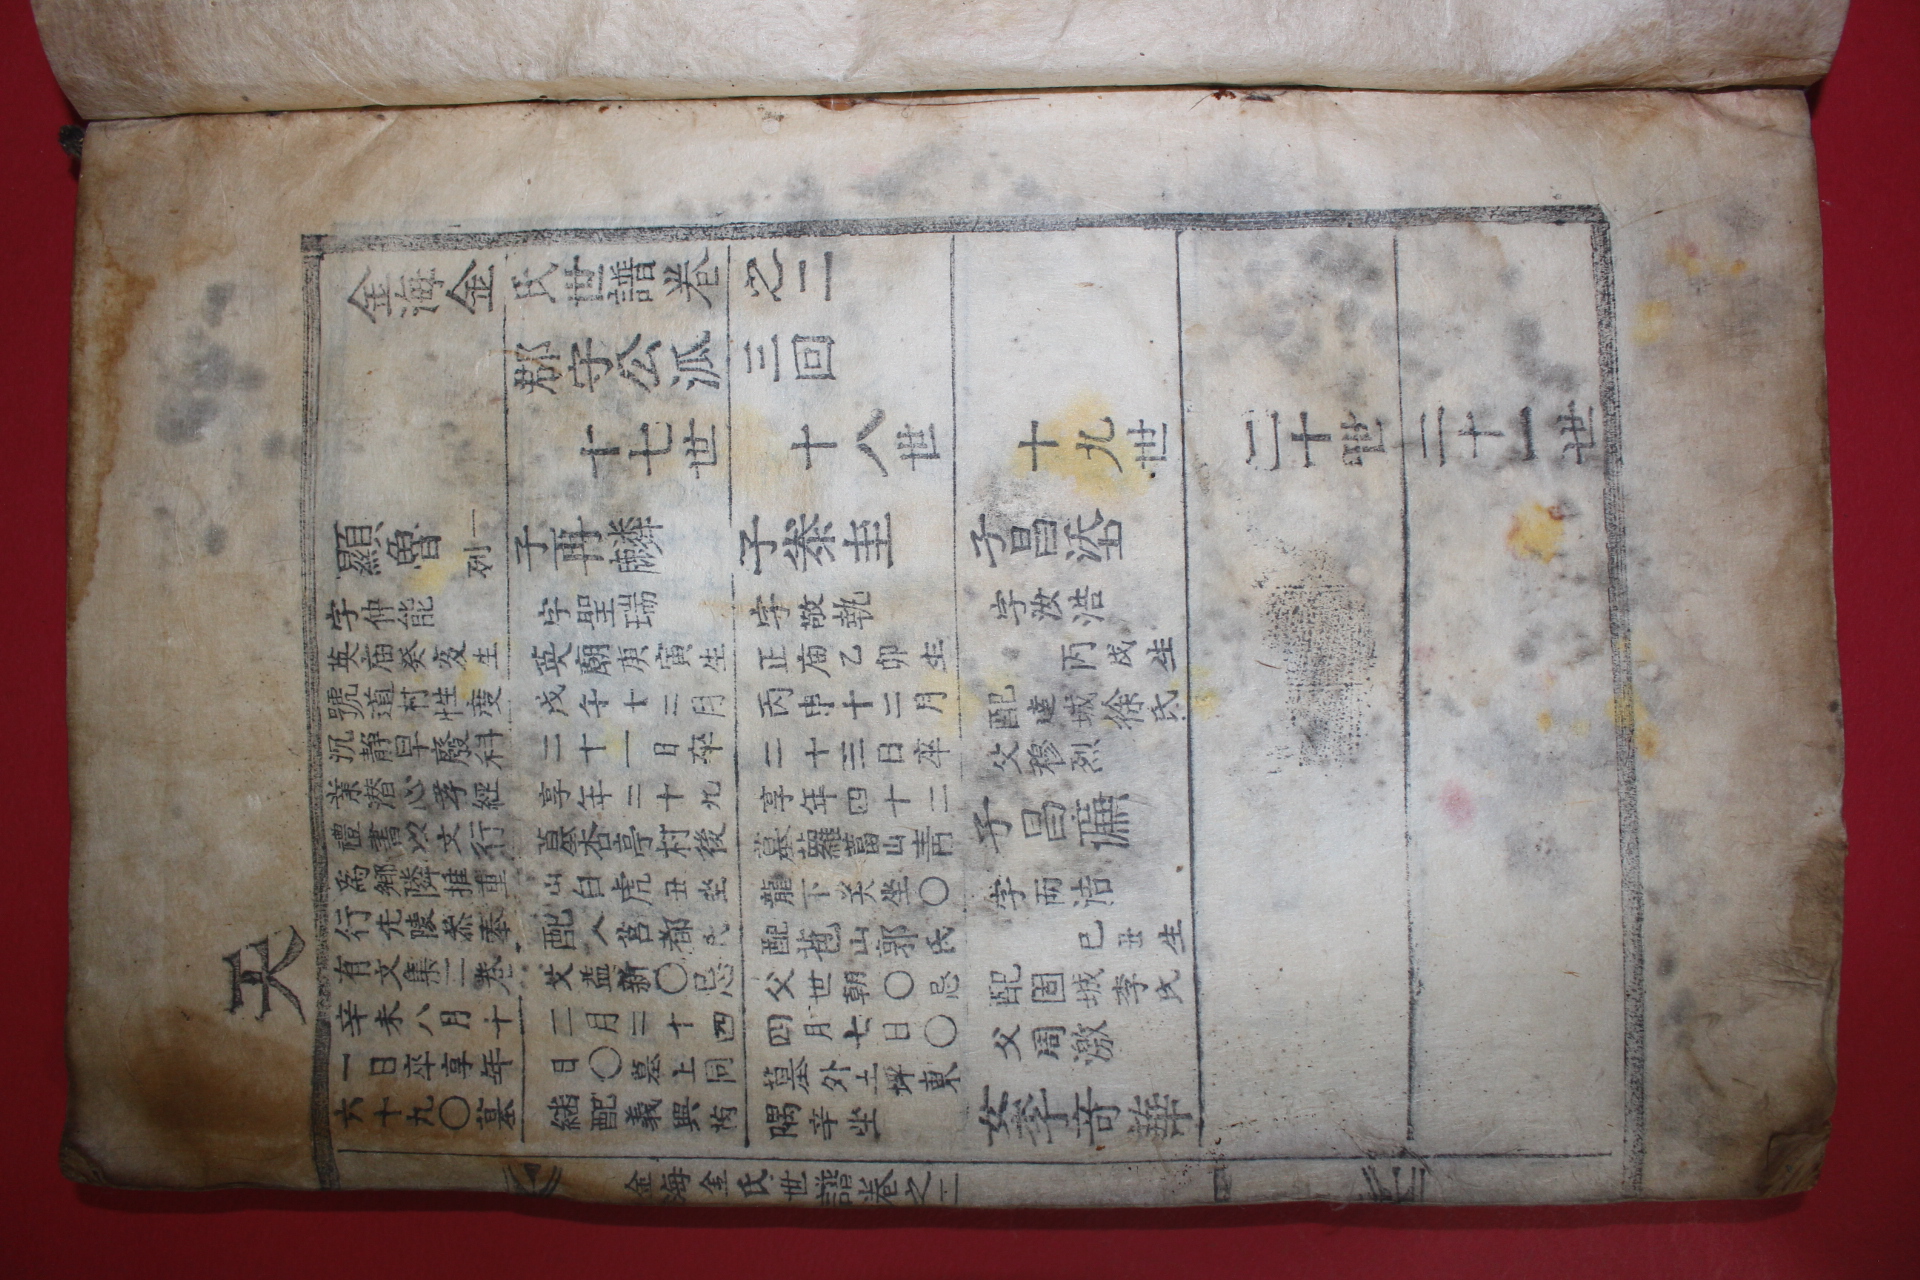 天
金海金氏世譜卷之二
郡守公派 三回
十七世
十八世
十九世
二十世
二十一世
顯魯 一列
字仲能
英庙癸亥生
號道村性度
沉靜早廢科
業潛心孝經
禮書以文行
爲鄉隣推重
行先陵叅奉
有文集二卷
辛未八月十
一日卒享年
六十九〇墓
子再麟
字聖瑞
英廟庚寅生
戊午十二月
二十一日卒
享年二十九
墓杏亭村後
山白虎丑坐
配八莒都氏
父益新〇忌
二月二十四
日〇墓上同
繼配義興芮
子泰圭
字敬執
正庙乙卯生
丙申十二月
二十三日卒
享年四十二
墓蘿蔔山靑
龍下癸坐〇
配苞山郭氏
父世朝〇忌
四月七日〇
墓外土坪東
隅辛坐
子昌
字汝浩
丙戌生
配達城徐氏
父穆烈
子昌濂
字而洁
己丑生
配固城李氏
父周激
女李奇華
金海金氏世譜卷之二